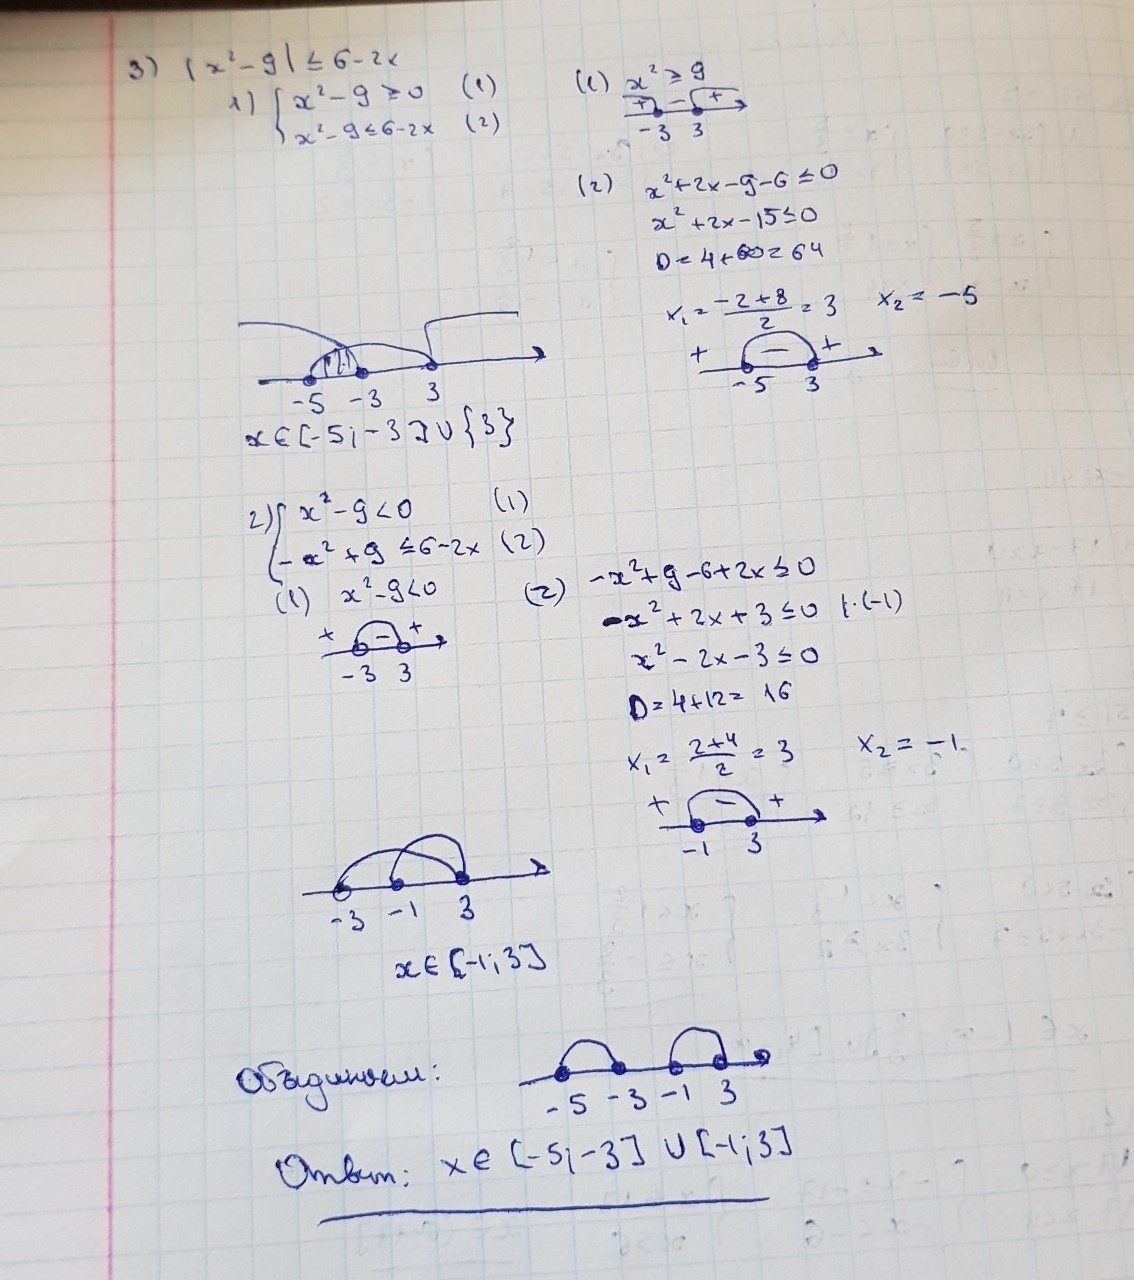 3) |x²-9| ≤ 6-2x
1) { x²-9 ≥ 0 (1)
x²-9 ≤ 6-2x (2)
(1) x² ≥ 9
+ - +
-3 3
(2) x²+2x-9-6 ≤ 0
x²+2x-15 ≤ 0
D = 4+60 = 64
x₁ = (-2+8)/2 = 3 x₂ = -5
+ - +
-5 3
-5 -3 3
x ∈ [-5; -3] ∪ {3}
2) { x²-9 < 0 (1)
-x²+9 ≤ 6-2x (2)
(1) x²-9 < 0
+ - +
-3 3
(2) -x²+9-6+2x ≤ 0
-x²+2x+3 ≤ 0 |·(-1)
x²-2x-3 ≤ 0
D = 4+12 = 16
x₁ = (2+4)/2 = 3 x₂ = -1
+ - +
-1 3
-3 -1 3
x ∈ [-1; 3]
Объединяем:
-5 -3 -1 3
Ответ: x ∈ [-5; -3] ∪ [-1; 3]